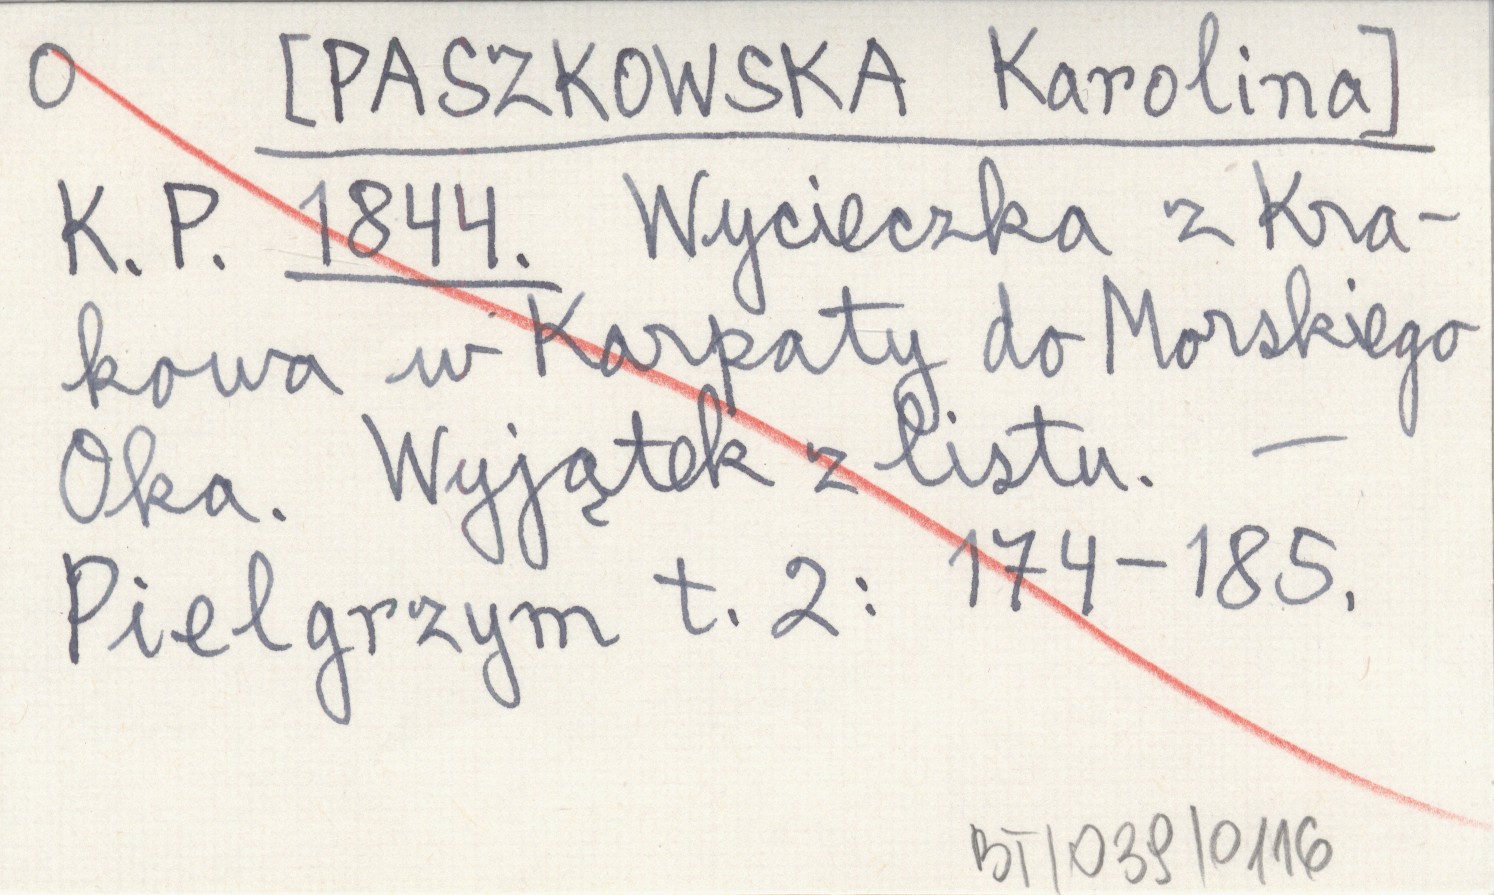 O [PASZKOWSKA Karolina]
K. P. 1844. Wycieczka z Kra-
kowa w Karpaty do Morskiego
Oka. Wyjątek z listu. —
Pielgrzym t. 2: 174-185.
BT/039/0116